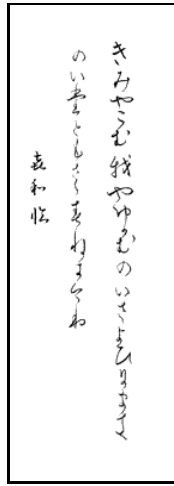 きみやこむ我やゆかむのいさよひにまき
のい堂ともさゝ春ねにけり
喜和臨